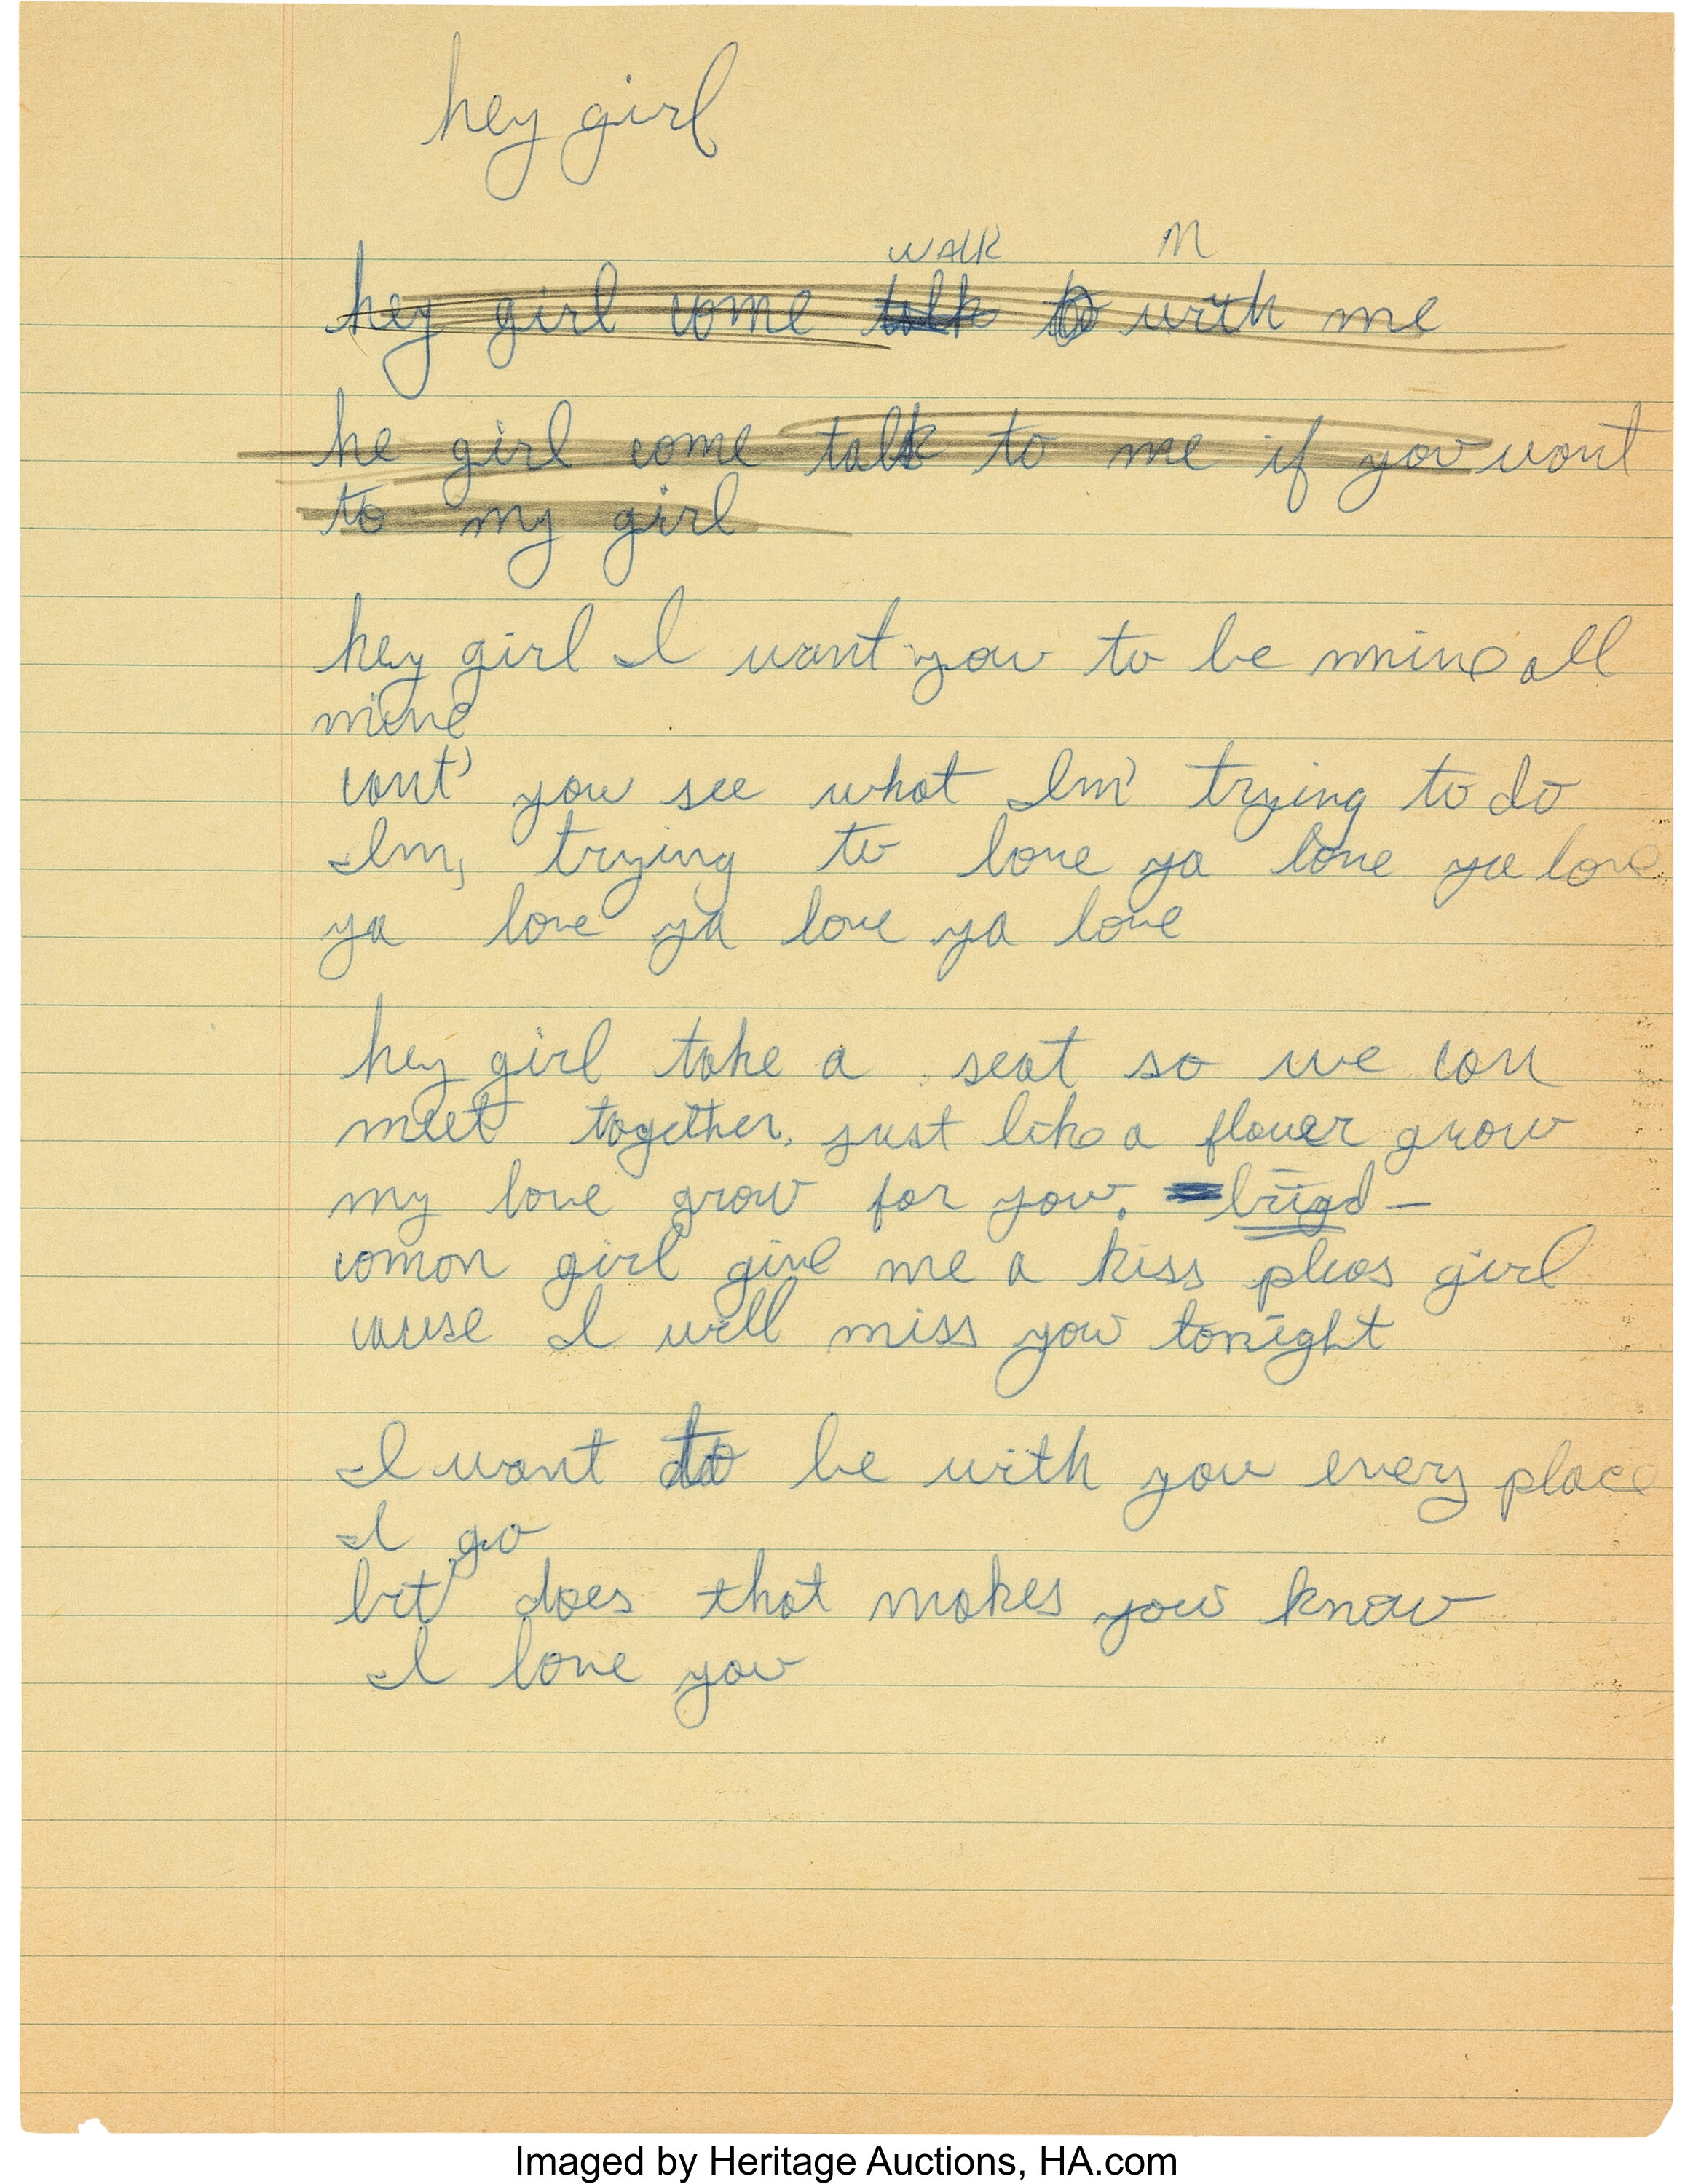 hey girl
WALK M
hey girl come talk to with me
he girl come talk to me if you want
to my girl
hey girl I want you to be mine all
mine
cant' you see what Im' trying to do
Im, trying to love ya love ya love
ya love ya love ya love
hey girl take a seat so we can
meet together, just like a flower grow
my love grow for you. brigd -
comon girl give me a kiss pleas girl
cause I will miss you tonight
I want to be with you every place
I go
but does that makes you know
I love you
Imaged by Heritage Auctions, HA.com